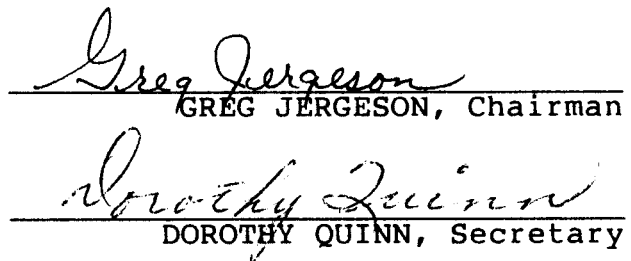 Greg Jergeson
GREG JERGESON, Chairman
Dorothy Quinn
DOROTHY QUINN, Secretary